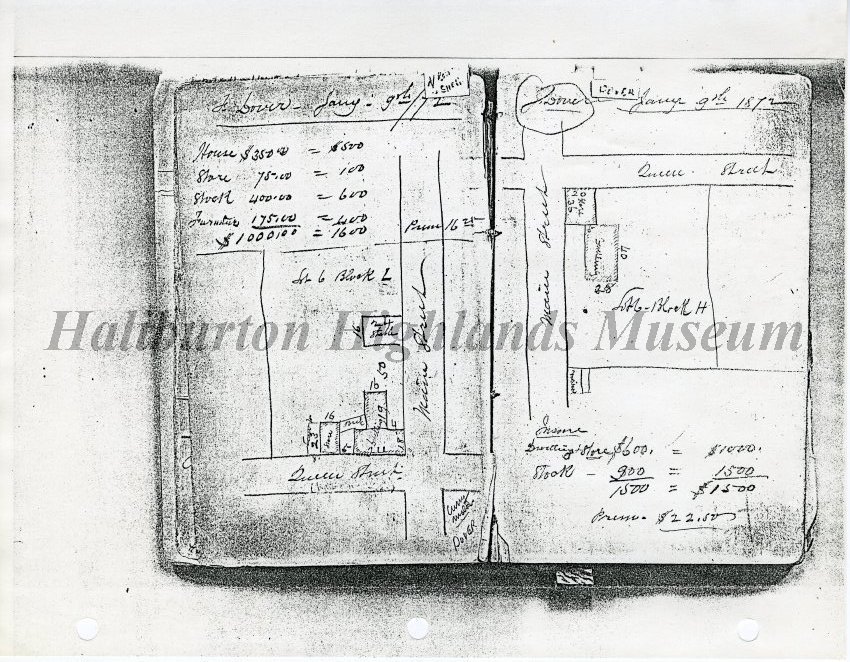 Jany 9th / 72
House $350.00 = $500
Store 75.00 = 100
Stock 400.00 = 600
Furniture 175.00 = 400
$1000.00 = 1600
Prem 16
Lot 6 Block L
Main Street
16
24
Stable
50
16
16
23
Store
18
24
Queen Street
Dover
Dover
DOVER
Jany 9th 1872
Queen Street
Main Street
40
28
Lot 6 - Block H
Haliburton Highlands Museum
Insure
Dwelling & Store $600. = $1000.
Stock - 900 = 1500
1500 = $1500
Prem. $22.50